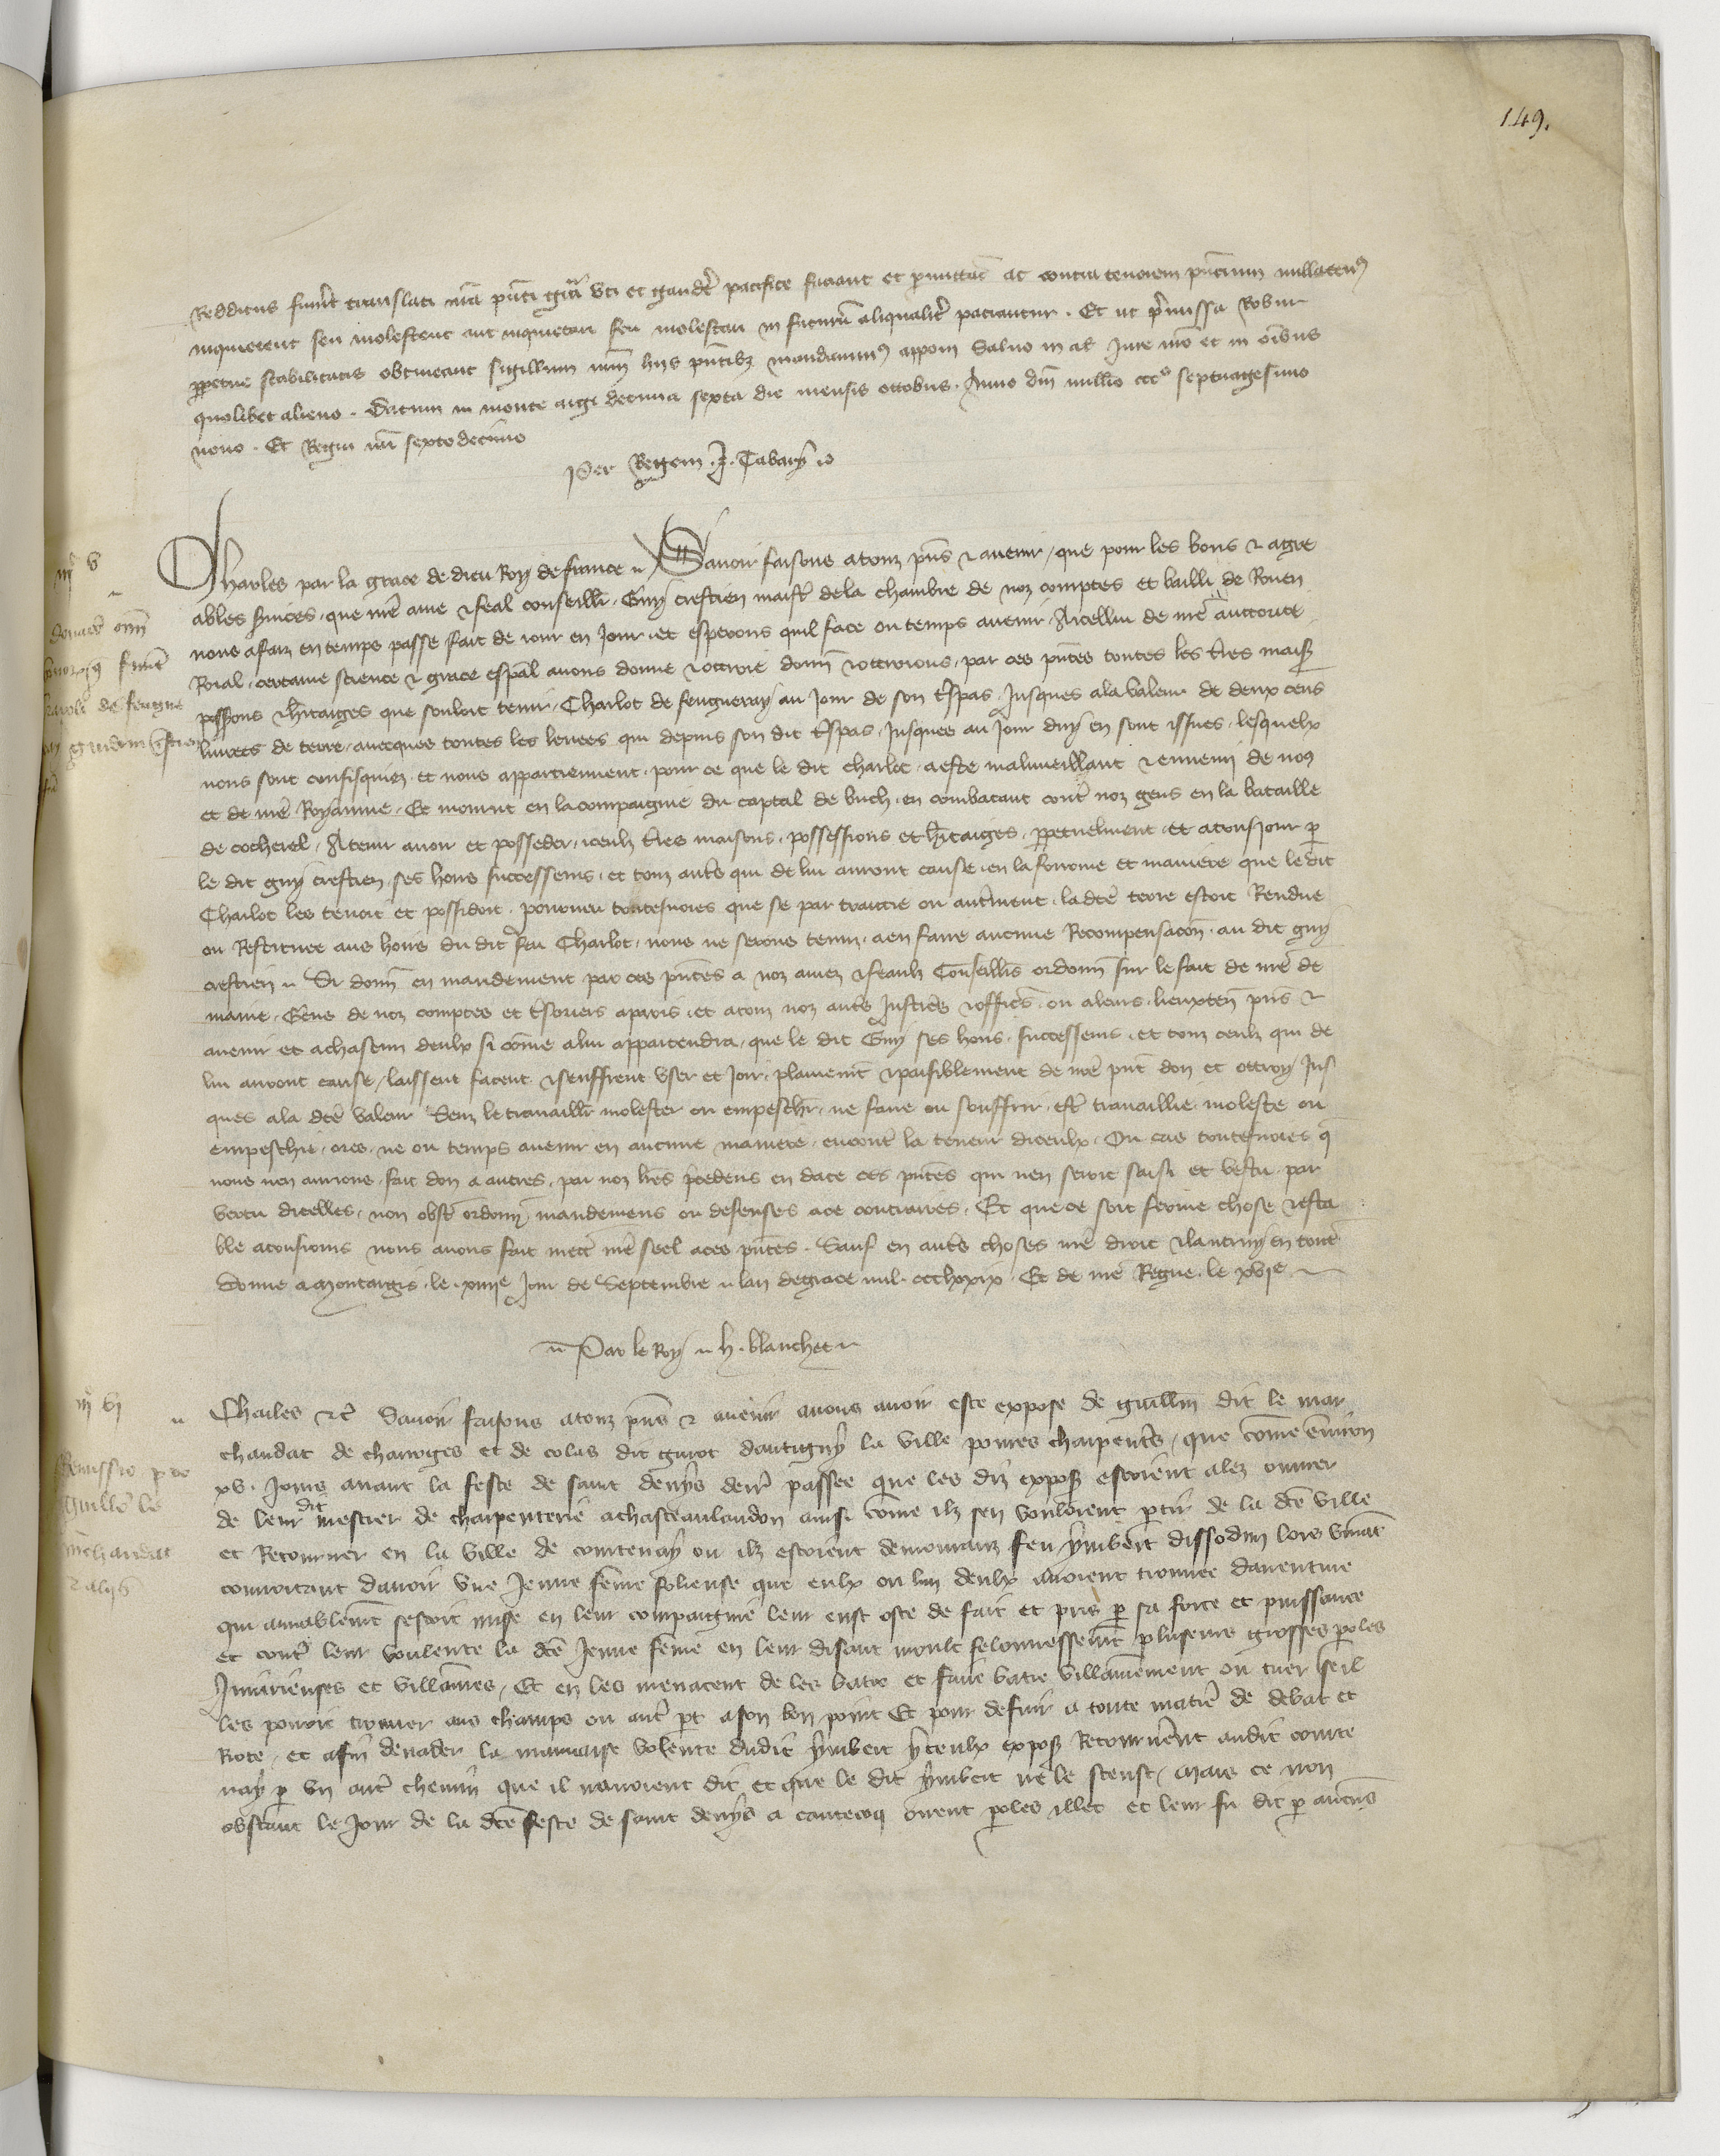 149.
Redditus fuerit translati nrã pñti grã uti et gaudere pacifice faciant et pmittãt ac contra tenorem pñtium nullatenus
inquietent seu molestent aut inquietari seu molestari in futurũ aliqualiter paciantur . Et ut premissa robur
ppetue stabilitatis obtineant sigillum nrm hiis pñtibz mandavimus apponi Salvo in al' Jure nro et in oĩbus
quolibet alieno . Datum in monte argi decima sexta die mensis octobris . Anno dñi millio ccco septuagesimo
nono . Et Regni nri sextodecimo
Per Regem . J . Tabary
iijc v
Charles par la grace de dieu Roy de france Savoir faisons a touz pñs & avenir / que pour les bons & agre
ables Svices , que nre ame & feal conseillr , Guy crestien maistr de la chambre de noz comptes et bailli de Rouen
nous a faiz en temps passe , fait de iour en Jour , et esperons quil face ou temps avenir , A icellui de nre auctorite
Roial , certaine science & grace espãl avons donne & ottroie donñ & ottroions , par ces pñtes toutes les tres mais
possions & hitaiges que souloit tenir , Charlot de feugueray au Jour de son trspas , Jusques a la valeur de deux cens
livrees de terre , avecques toutes les levees qui depuis son dit trspas , Jusques au Jour duy en sont issues , lesquelx
nous sont confisquiez , et nous appartiennent , pour ce que le dit charlot , a este malveillant & ennemi de nos
et de nre Royaume , Et mourut en la compaignie du captal de buch , en combatant contr noz gens en la bataille
de cocherel , A tenir avoir et posseder , iceulx tres maisons , possessions et hitaiges , ppetuelment , et a tousiour p
le dit guy crestien , ses hoirs successeurs , et touz autrs qui de lui auront cause , en la fourme et maniere que le dit
Charlot les tenoit et possidoit , pourveu toutesvoies que se par traittie ou autrment , la dcte terre estoit Rendue
ou Restituee aus hoirs du dit feu Charlot , nous ne serons tenuz , a en faire aucune Recompensacõn , au dit guy
crestien Si donñ en mandement par ces pñtes a noz amez & feaulx Conseillrs ordonñ sur le fait de nre de
maine , Gens de noz comptes et tresoriers a paris , et a touz noz autrs Justicrs & officrs , ou a leurs , lieuxten pñs &
avenir et a chascun deulx si cõme a lui appartendra , que le dit Guy ses hoirs , successeurs , et touz ceulx qui de
lui auront cause / laissent facent & seuffrent user et Joir , plainemt & paisiblement de nre pñt don et ottroy Jus
ques a la dcte valeur Senz le travaillr molester ou empeschr , ne faire ou souffrir , estr travaillie , moleste ou
empeschie , ores , ne ou temps avenir en aucune maniere , encontr la teneur diceulx , Ou cas toutesvoies q
nous nen aurions , fait don a autres , par noz lres precedens en date ces pñtes qui nen seroit saisi et vestu par
vertu dicelles , non obst ordonñ mandemens ou defenses a ce contraires , Et que ce soit ferme chose & esta
ble a tousiours nous avons fait mettr nre seel a ces pñtes . Sauf en autrs choses nre droit & lautruy en toutes
Donne a Montargis , le . xiiije Jour de Septembre lan de grace mil . ccclxxix . Et de nre Regne , le xvje
Par le Roy h . blanchet
iijc vj
Remissio p
Guillo le
mchandat
& aliis
Charles &c Savoir faisons a touz pñs & avenir avons avoir este expose de guillm dit le mar
chandat de charoiges et de colas dit guiot dantigny la ville povres charpentrs , que cõme environ
xv . Jours avant la feste de saint denys derr passee que les diz expos estoient alez ouvrer
de leur dit mestier de charpenterie a chasteaulandon ainsi cõme ilz sen vouloient ptir de la dcte ville
et Retourner en la ville de courtenay ou ilz estoient demourans feu ymbert dissodun lors vivãt
convoitant davoir une Jenne fẽme folieuse que eulx ou lun deulx avoient trouvee daventure
qui amiablemt sestoit mise en leur compaignie leur eust oste de fait et pris p sa force et puissance
et contr leur voulente la dcte Jenne fẽme en leur disant moult felonnessemt pluseurs grosses poles
Iniurieuses et villaines , Et en les menacent de les batre et faire batre villainnement ou tuer seil
les povoit trouver aus champs ou autr pt a son bon point Et pour defuir a toute matiere de debat et
Riote , et afin de vader la mauvaise volente dudit ymbert yceulx expos Retournerent audit courte
nay p un autr chemin que il navoient dit et que le dit ymbert ne le sceust , Mais ce non
obstant le Jour de la dcte feste de saint denys a cantecoq eurent poles illec et leur fu dit p aucuns